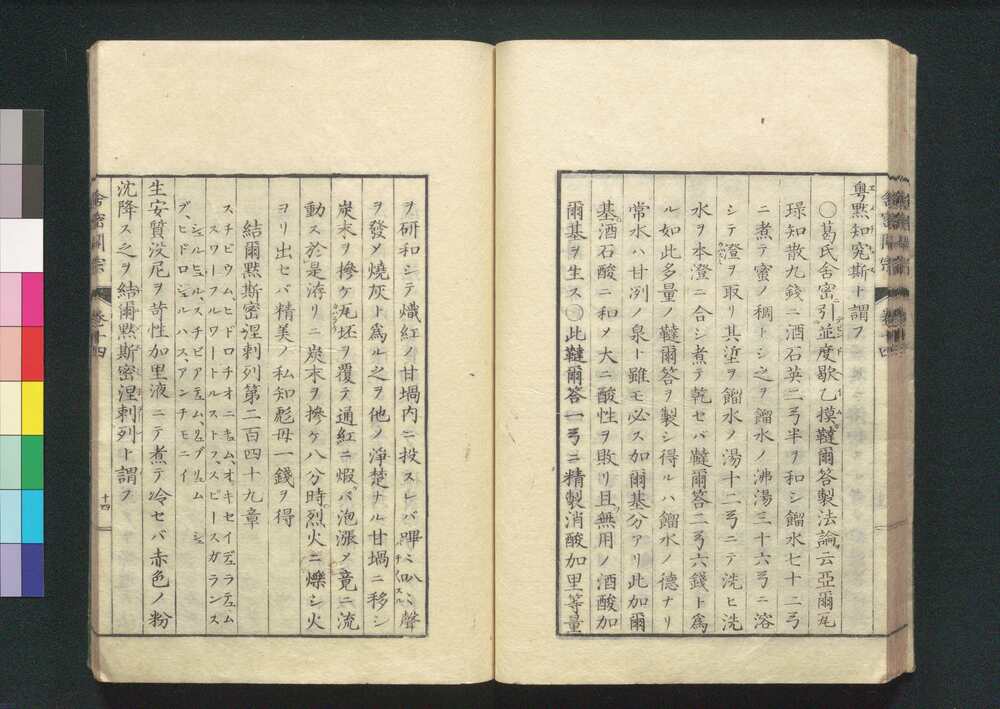 粤黙知寃斯ト謂フ
〇葛氏舎密引並度歇乙摸韃爾答製法論云亞爾
琭知散九錢ニ酒石英二弓半ヲ和シ餾水七十二弓
ニ煮テ蜜ノ稠トシ之ヲ餾水ノ沸湯三十六弓ニ溶
シテ澄ヲ取リ其滓ヲ餾水ノ湯十二弓ニテ洗ヒ洗
水ヲ本澄ニ合シ煮テ乾セバ韃爾答二弓六錢ト爲
ル如此多量ノ韃爾答ヲ製シ得ルハ餾水ノ德ナリ
常水ハ甘冽ノ泉ト雖モ必ス加爾基分アリ此加爾
基酒石酸ニ和メ大ニ酸性ヲ敗リ且無用ノ酒酸加
爾基ヲ生ス〇此韃爾答一弓ニ精製消酸加里等量
舎密開宗 卷十四
ヲ研和シテ熾紅ノ甘堝内ニ投スレバ聲
ヲ發メ燒灰ト爲ル之ヲ他ノ淨楚ナル甘堝ニ移シ
炭末ヲ摻ケ瓦坯ヲ覆テ通紅ニ煆バ泡漲メ竟ニ流
動ス於是滓リニ炭末ヲ摻ケ八分時烈火ニ爍シ火
ヨリ出セバ精美ノ私知彪母一錢ヲ得
結爾黙斯密涅刺列第二百四十九章
スチビウム、ヒドロチオニキュム、オキセイデュラテュム
スワーフルワートルストフ、スピースガランス
シュルヒュル、スチビアテュム、リュブリュム
グ、ヒドロシュルハス、アンチモニイ
生安質沒尼ヲ苛性加里液ニテ煮テ冷セバ赤色ノ粉
沈降ス之ヲ結爾黙斯密涅刺列ト謂フ
舎密開宗 卷十四
十四